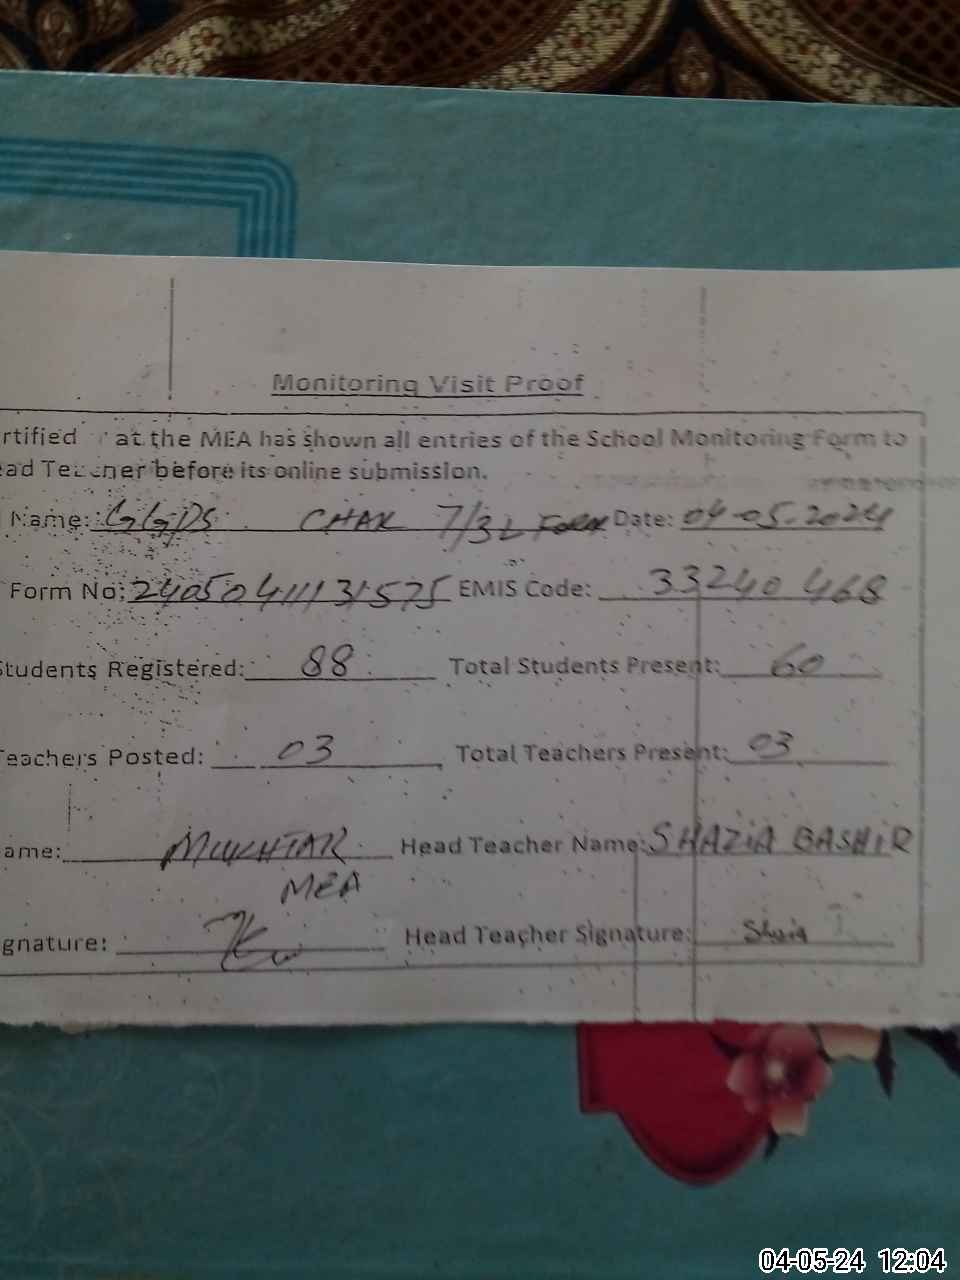 Monitoring Visit Proof
rtified at the MEA has shown all entries of the School Monitoring Form to
ead Teacher before its online submission.
Name: GGPS CHAK 7/3L Date: 04-05-2024
Form No: 24050411131575 EMIS Code: 33240468
Students Registered: 88 Total Students Present: 60
Teachers Posted: 03 Total Teachers Present: 03
ame: MUKHTAR Head Teacher Name: SHAZIA BASHIR
MEA
gnature: Head Teacher Signature:
04-05-24 12:04